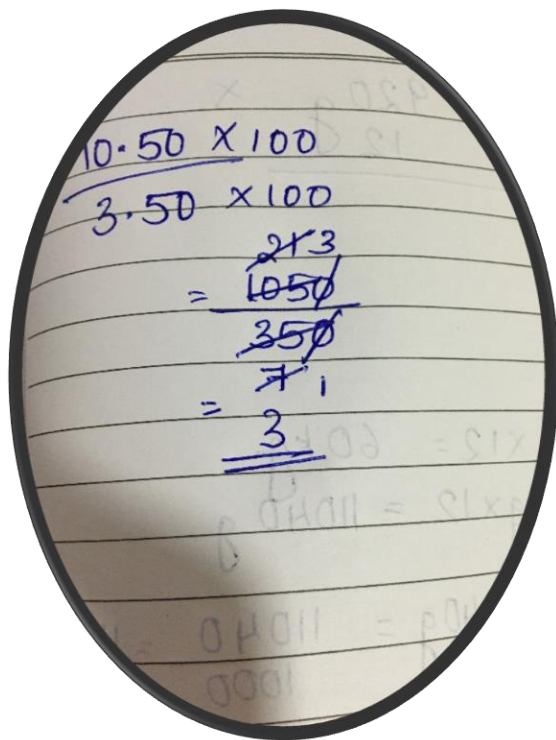 10.50 × 100
3.50 × 100
21 3
= 1050
350
7 1
= 3